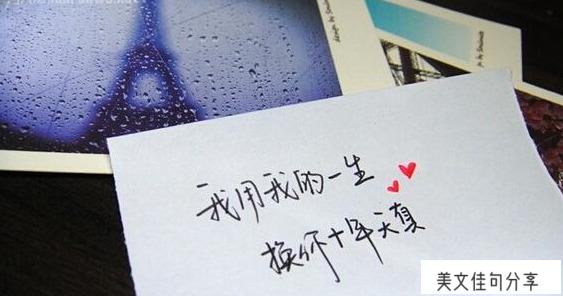 我用我的一生
换你十年天真
美文佳句分享